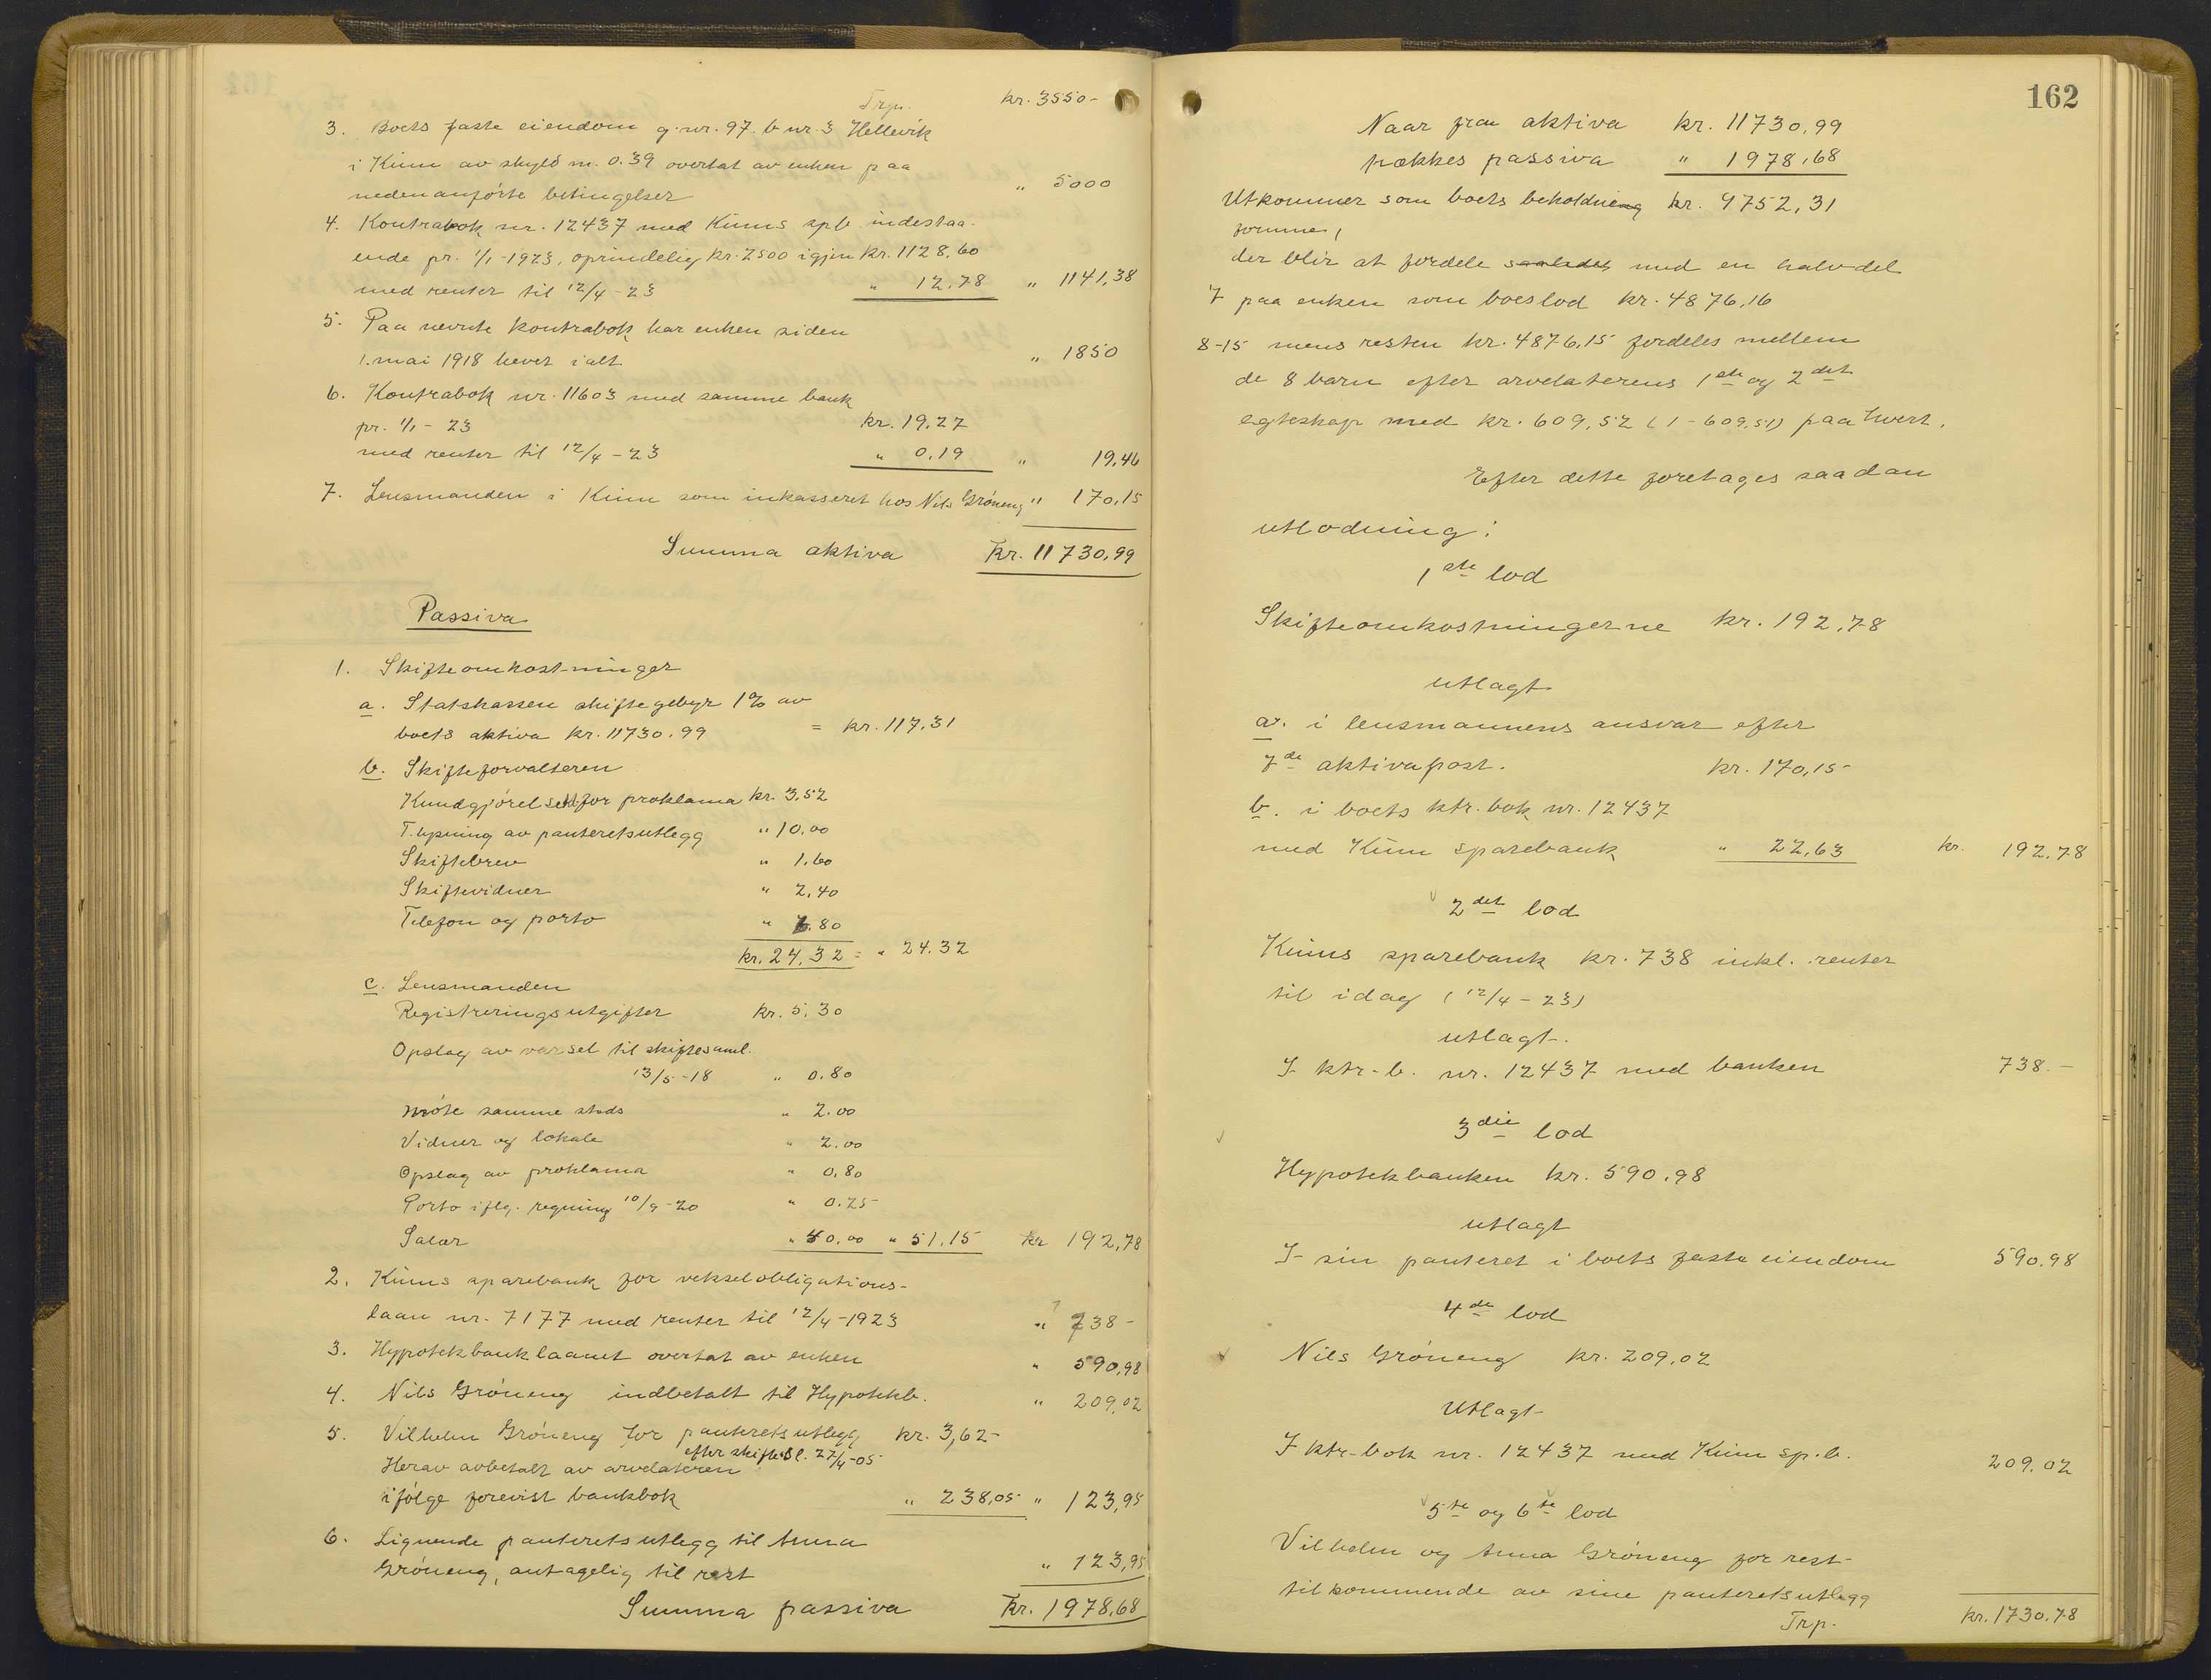 Trp. kr. 3550-
3. Boets faste eiendom g.nr. 97. b nr. 3 Hellevik
i Kinn av skyld m. 0.39 overtat av enken paa
nedenanførte betingelser " 5000
4. Kontrabok nr. 12437 med Kinns spb. indestaa-
ende pr. 1/1-1923, oprindelig kr. 2500 igjen kr. 1128,60
med renter til 12/4-23 " 12.78 " 1141,38
5. Paa nevnte kontrabok har enken siden
1. mai 1918 hevet ialt " 1850
6. Kontrabok nr. 11603 med samme bank
pr. 1/1-23 kr. 19,27
med renter til 12/4-23 " 0.19 " 19,46
7. Lensmanden i Kinn som inkasseret hos Nils Grøneng " 170,15
Summa aktiva kr. 11730,99
Passiva
1. Skifteomkostninger
a. Statskassen skiftegebyr 1% av
boets aktiva kr. 11730.99 = kr. 117,31
b. Skifteforvalteren
Kundgjørelse for proklama kr. 3.52
T.lysning av panteretsutlegg " 10.00
Skiftebrev " 1.60
Skiftevidner " 2,40
Telefon og porto " 6.80
kr. 24.32 = " 24.32
c. Lensmanden
Registreringsutgifter kr. 5,30
Opslag av varsel til skiftesaml.
13/5-18 " 0.80
Møte samme steds " 2.00
Vidner og lokale " 2.00
Opslag av proklama " 0.80
Porto iflg. regning 10/9-20 " 0.25
Salær " 40.00 " 51.15 kr 192,78
2. Kinns sparebank for vekselobligations-
laan nr. 7177 med renter til 12/4-1923 " 738-
3. Hypotekbanklaanet overtat av enken " 590,98
4. Nils Grøneng indbetalt til Hypotekb. " 209,02
5. Vilhelm Grøneng for panteretsutlegg kr. 3,62-
efter skiftesl. 27/4-05
Herav avbetalt av arvelateren
ifølge forevist bankbok " 238,05 " 123,95
6. Lignende panteretsutlegg til Anna
Grøneng, antagelig til rest " 123,95
Summa passiva kr. 1978,68
162
Naar fra aktiva kr. 11730,99
trækkes passiva " 1978,68
Utkommer som boets beholdning kr. 9752,31
formue,
der blir at fordele saaledes med en halvdel
7 paa enken som boeslod kr. 4876,16
8-15 mens resten kr. 4876,15 fordeles mellem
de 8 barn efter arvelaterens 1ste og 2det
egteskap med kr. 609,52 (1-609,51) paa hvert.
Efter dette foretages saadan
utlodning:
1ste lod
Skifteomkostningerne kr. 192,78
utlagt
a. i lensmannens ansvar efter
7de aktivapost. kr. 170,15
b. i boets ktr.bok nr. 12437
med Kinn sparebank " 22,63 kr. 192,78
2det lod
Kinns sparebank kr. 738 inkl. renter
til idag (12/4-23)
utlagt.
I ktr-b. nr. 12437 med banken 738.-
3die lod
Hypotekbanken kr. 590.98
utlagt
I sin panteret i boets faste eiendom 590.98
4de lod
Nils Grøneng kr. 209.02
Utlagt
I ktr-bok nr. 12437 med Kinn sp.b. 209.02
5te og 6te lod
Vilhelm og Anna Grøneng for rest-
tilkommende av sine panteretsutlegg
Trp. kr. 1730.78